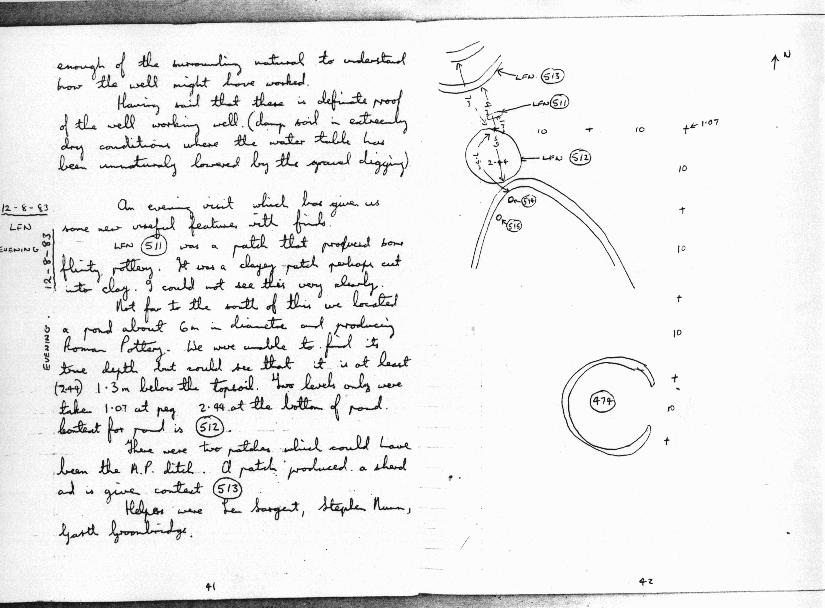 enough of the surrounding natural to understand
how the well might have worked.
Having said that there is definate proof
of the well working well. (damp soil in extremely
dry conditions where the water table has
been unnaturaly lowered by the gravel digging)
12-8-83
LFN
EVENING
12-8-83
EVENING.
An evening visit which has given us
some new useful features with finds.
LFN 511 was a patch that produced some
flinty pottery. It was a clayey patch perhaps cut
into clay. I could not see this very clearly.
Not far to the south of this we located
a pond about 6m in diametre and producing
Roman Pottery. We were unable to find its
true depth but could see that it is at least
(2.44) 1.3m below the topsoil. Two levels only were
take 1.07 at peg 2.44 at the bottom of pond.
Context for pond is 512.
There were two patches which could have
been the A.P. ditch. A patch produced a sherd
and is given context 513
Helpers were Len Sargent, Stephen Nunn,
Garth Groombridge.
41
N
LFN 513
LFN 511
10 + 10 + 1.07
2.44
LFN 512
10
+
514
515
10
+
10
+
474
10
+
42